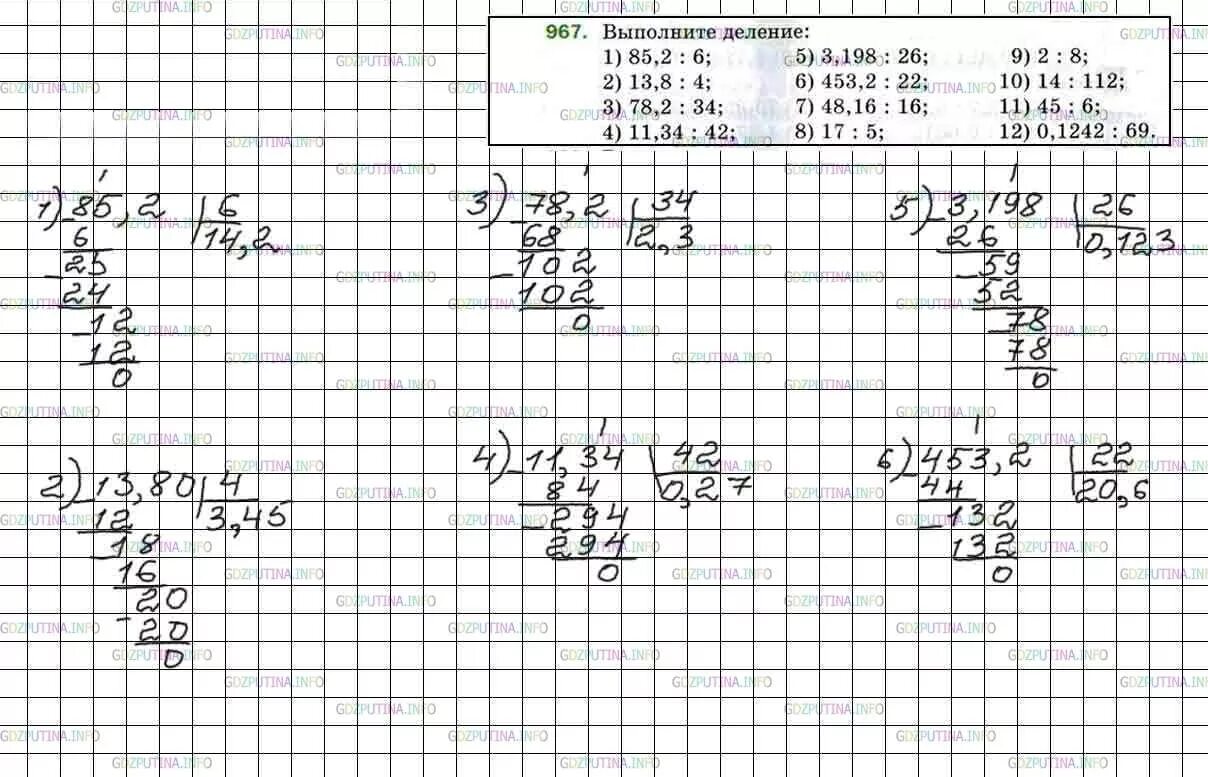 967. Выполните деление:
1) 85,2 : 6; 5) 3,198 : 26; 9) 2 : 8;
2) 13,8 : 4; 6) 453,2 : 22; 10) 14 : 112;
3) 78,2 : 34; 7) 48,16 : 16; 11) 45 : 6;
4) 11,34 : 42; 8) 17 : 5; 12) 0,1242 : 69.
1) 85,2 | 6
6 | 14,2
25
24
12
12
0
3) 78,2 | 34
68 | 2,3
102
102
0
5) 3,198 | 26
26 | 0,123
59
52
78
78
0
2) 13,80 | 4
12 | 3,45
18
16
20
20
0
4) 11,34 | 42
84 | 0,27
294
294
0
6) 453,2 | 22
44 | 20,6
132
132
0
GDZPUTINA.INFO